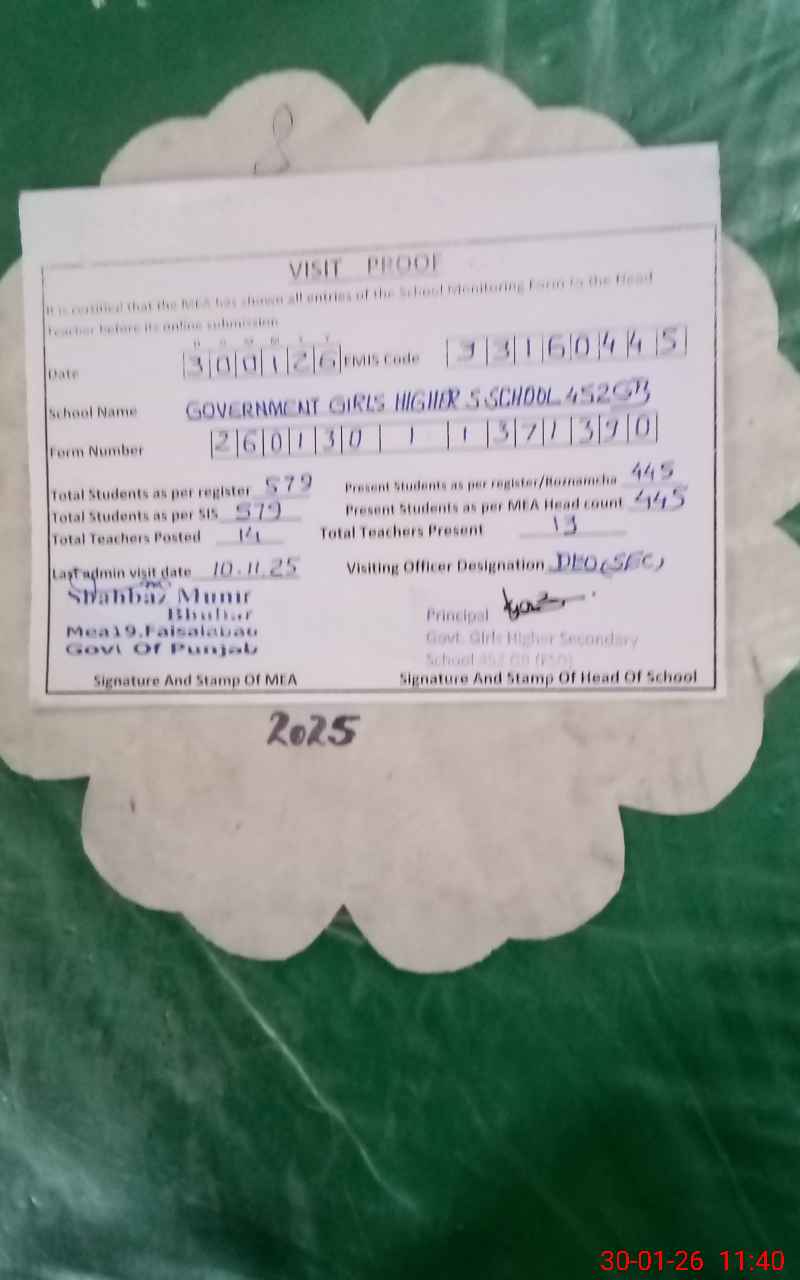 8
VISIT PROOF
It is certified that the MEA has shown all entries of the School Monitoring Form to the Head
Teacher before its online submission
D D M M Y Y
Date 300126 EMIS Code 33160445
School Name GOVERNMENT GIRLS HIGHER S.SCHOOL 452GB
Form Number 260130 1 1371390
Total Students as per register 579 Present Students as per register/Roznamcha 445
Total Students as per SIS 579 Present Students as per MEA Head count 445
Total Teachers Posted 14 Total Teachers Present 13
Last admin visit date 10.11.25 Visiting Officer Designation DEO(SEC)
Shahbaz Munir
Bhuhar
Mea19,Faisalabad
Govt Of Punjab
Principal
Govt. Girls Higher Secondary
School 452 GB (FSD)
Signature And Stamp Of MEA Signature And Stamp Of Head Of School
2025
30-01-26 11:40